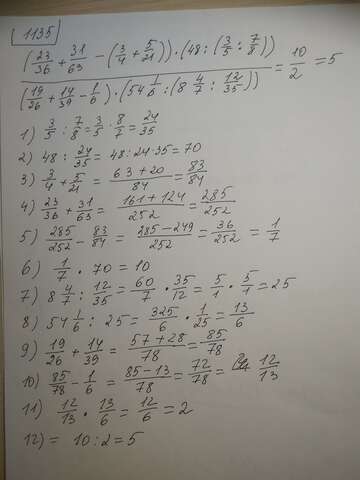 1135
((23/36 + 31/63 - (3/4 + 5/21)) · (48 : (3/5 : 7/8))) / ((19/26 + 14/39 - 1/6) · (54 1/6 : (8 4/7 : 12/35))) = 10/2 = 5
1) 3/5 : 7/8 = 3/5 · 8/7 = 24/35
2) 48 : 24/35 = 48:24·35 = 70
3) 3/4 + 5/21 = 63+20/84 = 83/84
4) 23/36 + 31/63 = 161+124/252 = 285/252
5) 285/252 - 83/84 = 285-249/252 = 36/252 = 1/7
6) 1/7 · 70 = 10
7) 8 4/7 : 12/35 = 60/7 · 35/12 = 5/1 · 5/1 = 25
8) 54 1/6 : 25 = 325/6 · 1/25 = 13/6
9) 19/26 + 14/39 = 57+28/78 = 85/78
10) 85/78 - 1/6 = 85-13/78 = 72/78 = 12/13
11) 12/13 · 13/6 = 12/6 = 2
12) = 10:2 = 5